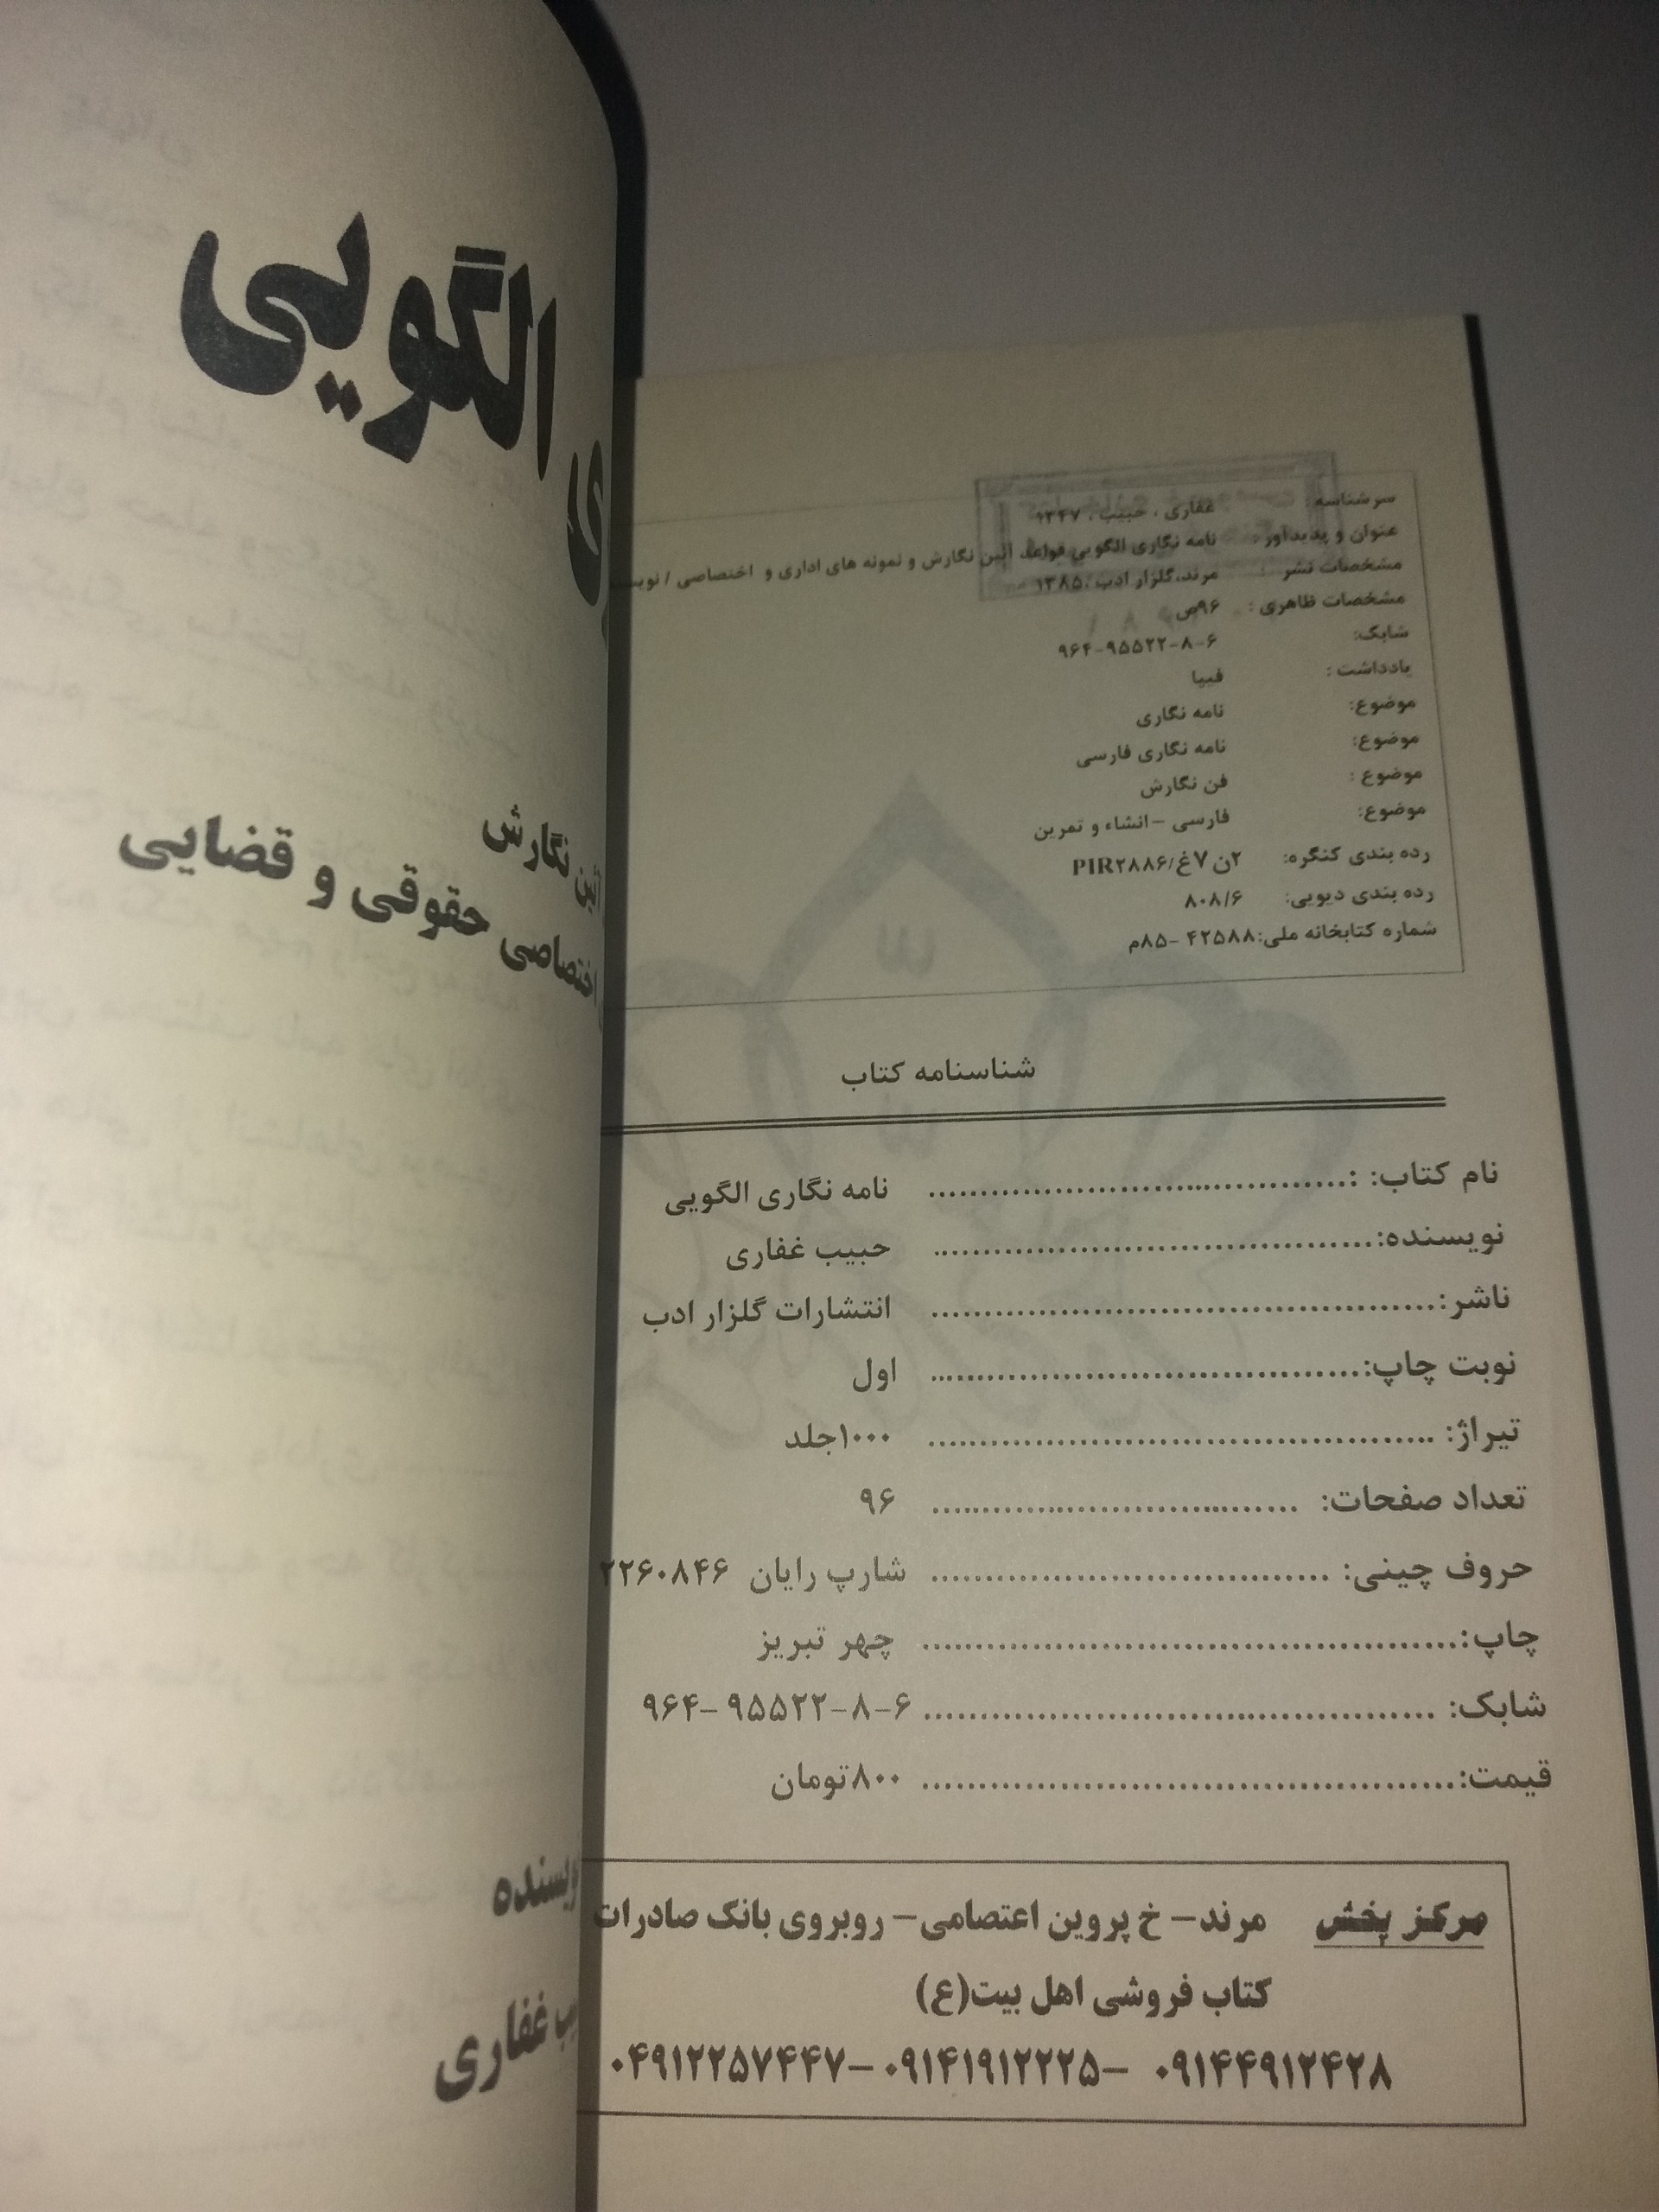 سرشناسه : غفاری ، حبیب ، ۱۳۴۷
عنوان و پدیدآور : نامه نگاری الگویی قواعد آئین نگارش و نمونه های اداری و اختصاصی /
مشخصات نشر : مرند،گلزار ادب ،۱۳۸۵
مشخصات ظاهری : ۹۶ص
شابک: ۹۶۴-۹۵۵۲۲-۸-۶
یادداشت : فیپا
موضوع: نامه نگاری
موضوع: نامه نگاری فارسی
موضوع : فن نگارش
موضوع: فارسی –انشاء و تمرین
رده بندی کنگره: ۲ن ۷غ/PIR۲۸۸۶
رده بندی دیویی: ۸۰۸/۶
شماره کتابخانه ملی:۴۲۵۸۸ –۸۵م
شناسنامه کتاب
نام کتاب: :.............................. نامه نگاری الگویی
نویسنده:.............................. حبیب غفاری
ناشر:.............................. انتشارات گلزار ادب
نوبت چاپ:.............................. اول
تیراژ: .............................. ۱۰۰۰جلد
تعداد صفحات: .............................. ۹۶
حروف چینی: .............................. شارپ رایان ۲۲۶۰۸۴۶
چاپ:.............................. چهر تبریز
شابک: .............................. ۹۶۴–۹۵۵۲۲–۸–۶
قیمت:.............................. ۸۰۰تومان
مرکز پخش مرند– خ پروین اعتصامی– روبروی بانک صادرات
کتاب فروشی اهل بیت(ع)
۰۹۱۴۴۹۱۲۴۲۸ –۰۹۱۴۱۹۱۲۲۲۵ –۰۴۹۱۲۲۵۷۴۴۷
ی الگویی
نگارش
اختصاصی حقوقی و قضایی
غفاری